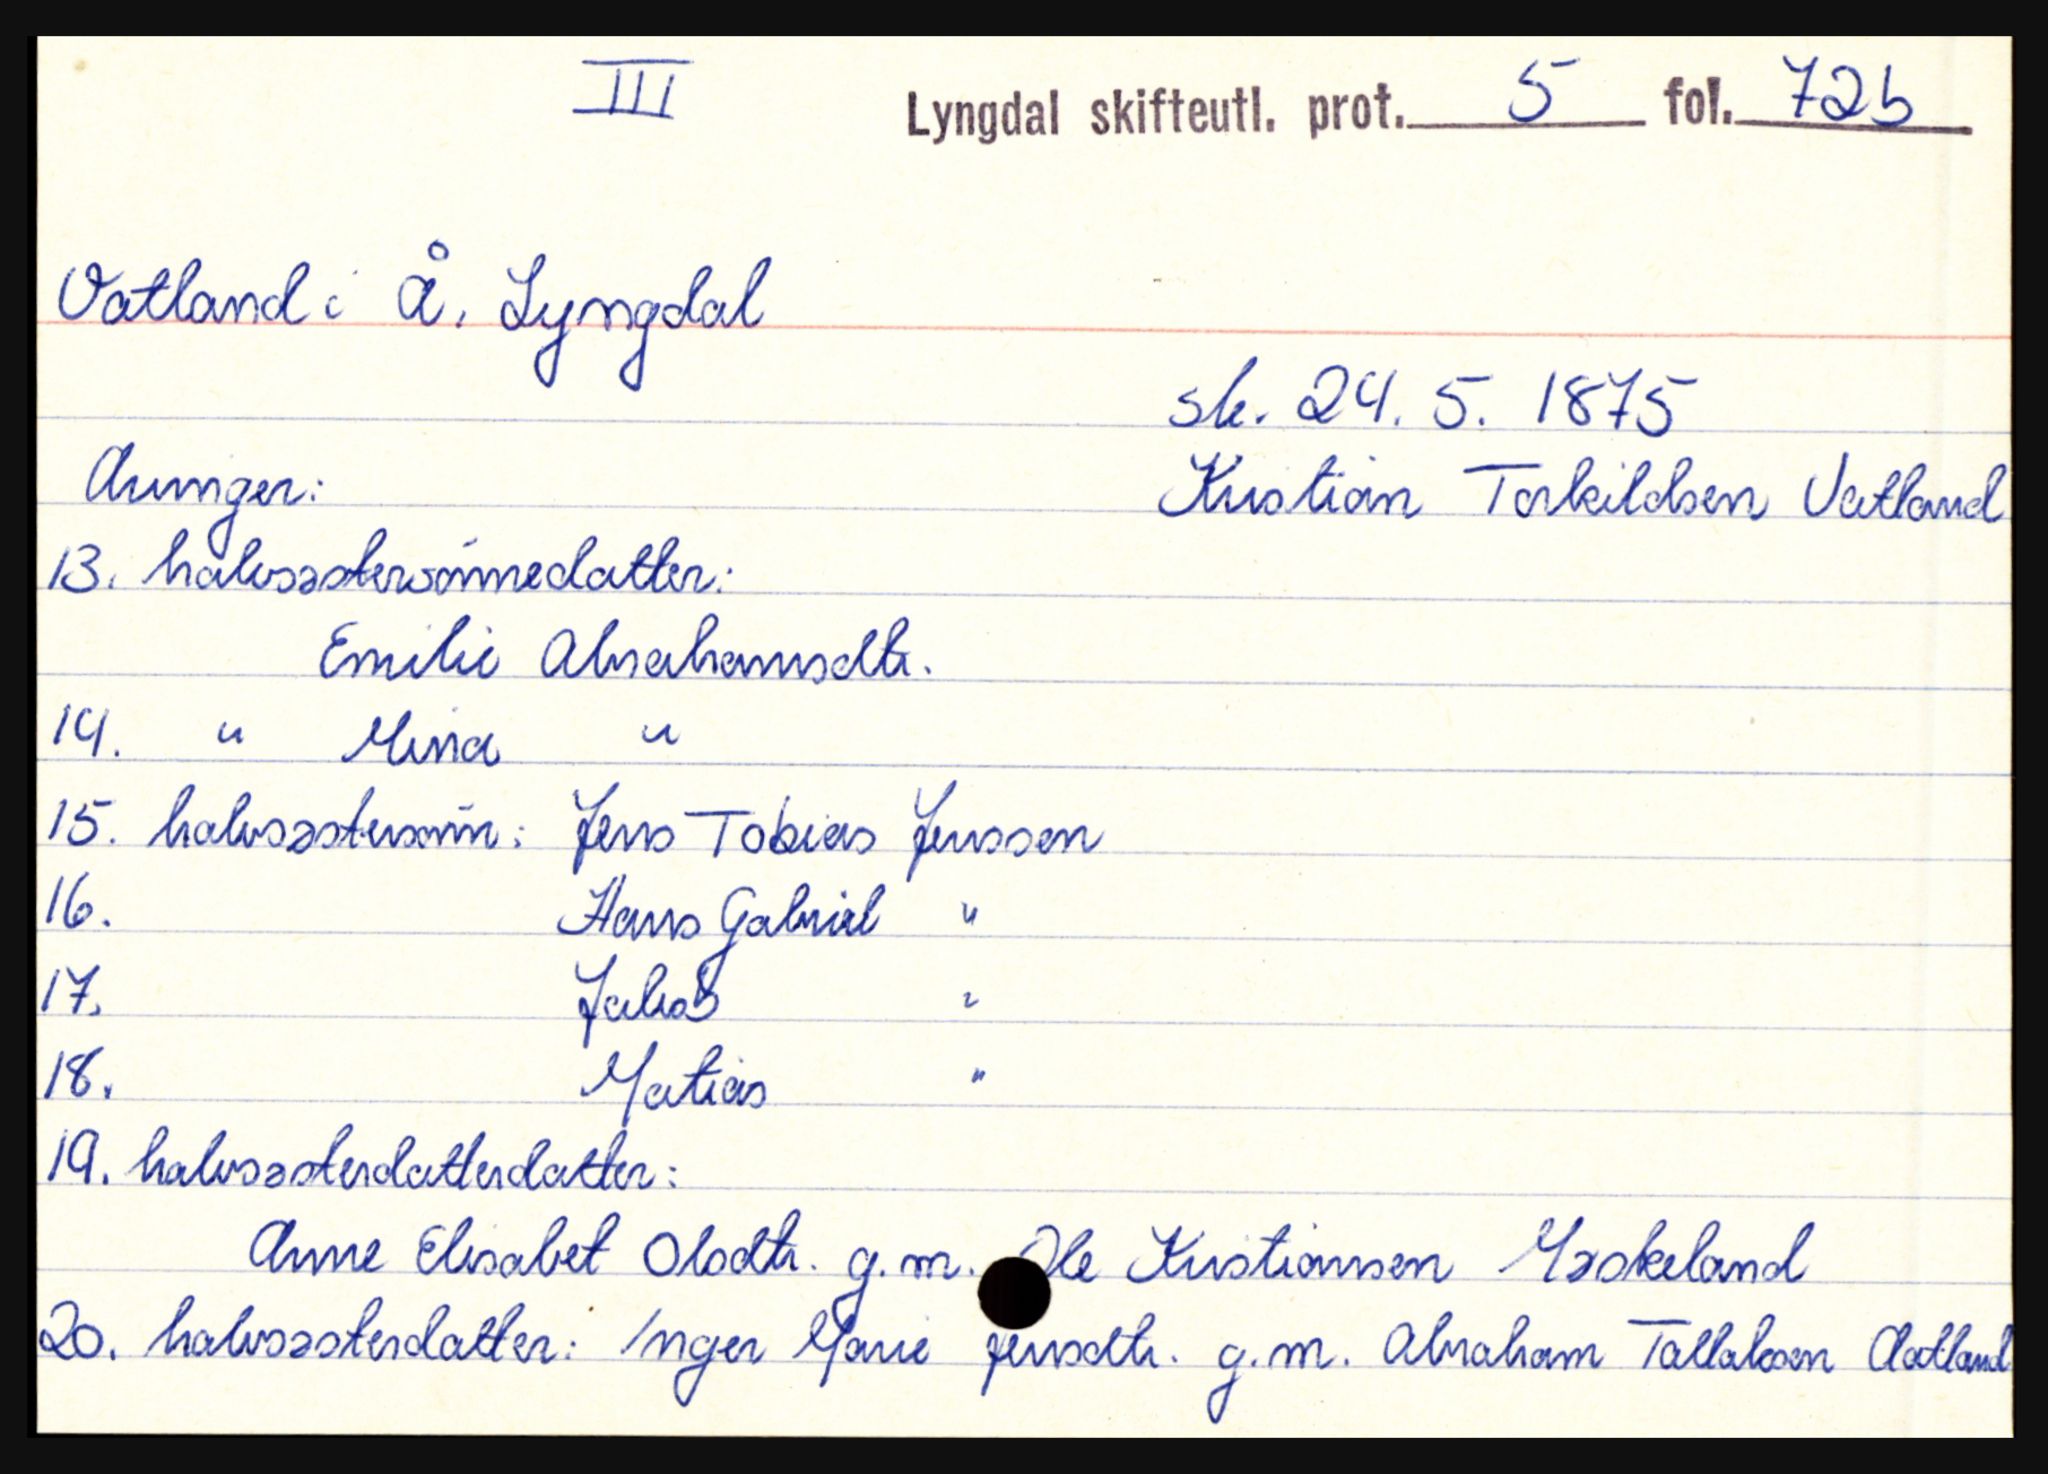 III
Lyngdal skifteutl. prot. 5 fol. 72b
Vatland i Å, Lyngdal
sk. 24. 5. 1875
Arvinger: Kristian Torkildsen Vatland
13. halvsøstersönnedatter:
Emilie Abrahamsdtr.
14. " Mina "
15. halvsøstersönn: Jens Tobias Jenssen
16. Hans Gabriel "
17. Jakob "
18. Matias "
19. halvsøsterdatterdatter:
Anne Elisabet Olsdtr. g.m. Ole Kristiansen Høskeland
20. halvsøsterdatter: Inger Marie Jensdtr. g.m. Abraham Tallaksen